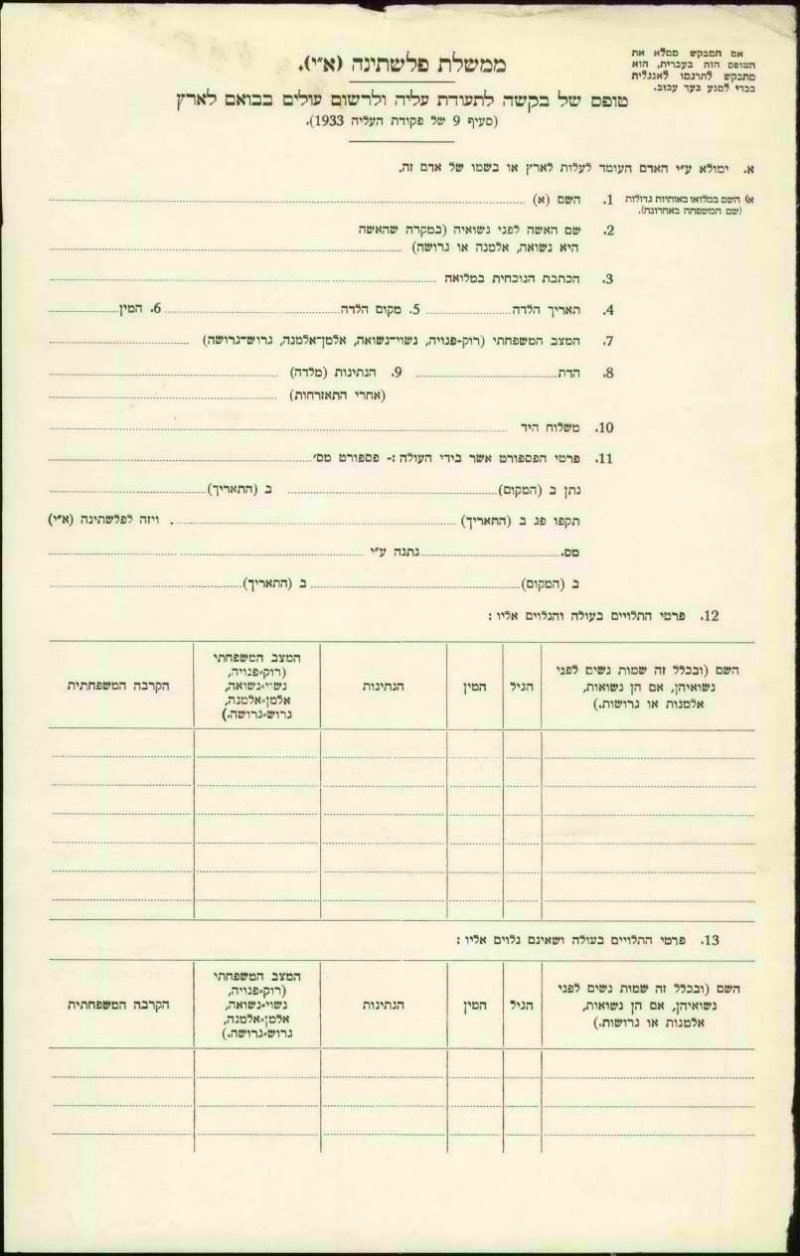 אם המבקש ממלא את
הטופס הזה בעברית, הוא
מתבקש לתרגמו לאנגלית
בכדי למנע בעד עכוב.
ממשלת פלשתינה (א״י).
טופס של בקשה לתעודת עליה ולרשום עולים בבואם לארץ
(סעיף 9 של פקודת העליה 1933).
א. ימולא ע״י האדם העומד לעלות לארץ או בשמו של אדם זה.
א) השם במלואו באותיות גדולות
(שם המשפחה באחרונה).
1. השם (א)
2. שם האשה לפני נשואיה (במקרה שהאשה
היא נשואה, אלמנה או גרושה)
3. הכתבת הנוכחית במלואה
4. תאריך הלדה 5. מקום הלדה 6. המין
7. המצב המשפחתי (רוק-פנויה, נשוי-נשואה, אלמן-אלמנה, גרוש-גרושה)
8. הדת 9. הנתינות (מלדה)
(אחרי התאזרחות)
10. משלוח היד
11. פרטי הפספורט אשר בידי העולה :- פספורט מס׳
נתן ב (המקום) ב (התאריך)
תקפו פג ב (התאריך) . ויזה לפלשתינה (א״י)
מס. נתנה ע״י
ב (המקום) ב (התאריך)
12. פרטי התלויים בעולה והנלוים אליו :
השם (ובכלל זה שמות נשים לפני
נשואיהן, אם הן נשואות,
אלמנות או גרושות.)
הגיל
המין
הנתינות
המצב המשפחתי
(רוק-פנויה,
נשוי-נשואה,
אלמן-אלמנה,
גרוש-גרושה.)
הקרבה המשפחתית
13. פרטי התלויים בעולה ושאינם נלוים אליו :
השם (ובכלל זה שמות נשים לפני
נשואיהן, אם הן נשואות,
אלמנות או גרושות.)
הגיל
המין
הנתינות
המצב המשפחתי
(רוק-פנויה,
נשוי-נשואה,
אלמן-אלמנה,
גרוש-גרושה.)
הקרבה המשפחתית